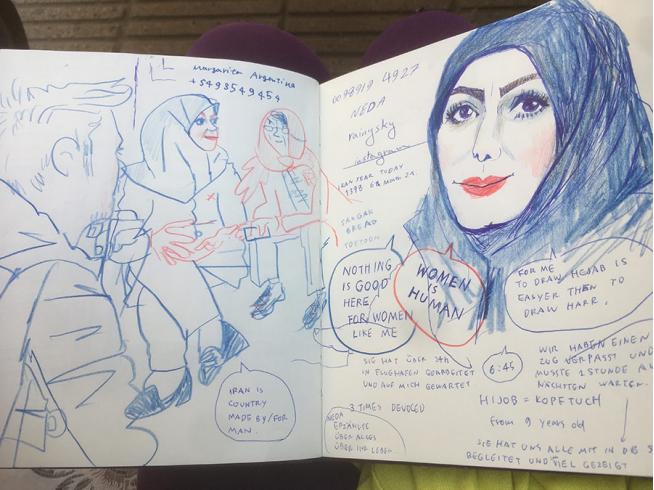 Margarita Argentina
+5493549454
IRAN IS
COUNTRY
MADE BY/FOR
MAN.
0098919 4927
NEDA
rainysky
instagram
IRAN YEAR TODAY
1398
SANGAK
BREAD
TOFTOON
NOTHING
IS GOOD
HERE,
FOR WOMEN
LIKE ME
WOMEN
IS
HUMAN
FOR ME
TO DRAW HEJAB IS
EASYER THEN TO
DRAW HARR.
SIE HAT ÜBER
IN FLUGHAFEN GEARBEITET
UND AUF MICH GEWARTET
6:45
WIR HABEN EINEN
ZUG VERPASST UND
MUSSTE 2 STUNDE
NÄCHSTEN WARTEN.
HIJOB = KOPFTUCH
from 9 years old
3 TIMES DEVOCED
NEDA
ERZÄHLTE
ÜBER ALLES
ÜBER IHR LEBEN
SIE HAT UNS ALLE MIT IN
BEGLEITET UND VIEL GEZEIGT